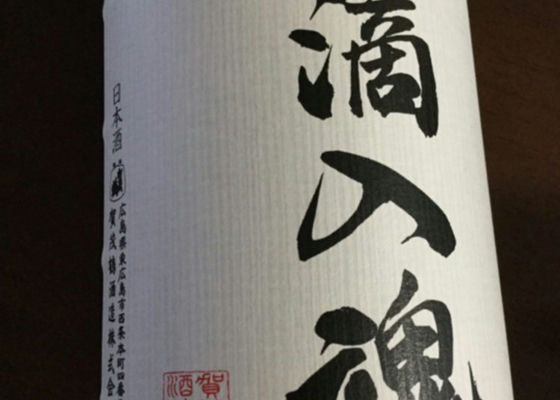 滴入魂
日本酒
広島県東広島市西条本町四番
賀茂鶴酒造株式会
賀
酒